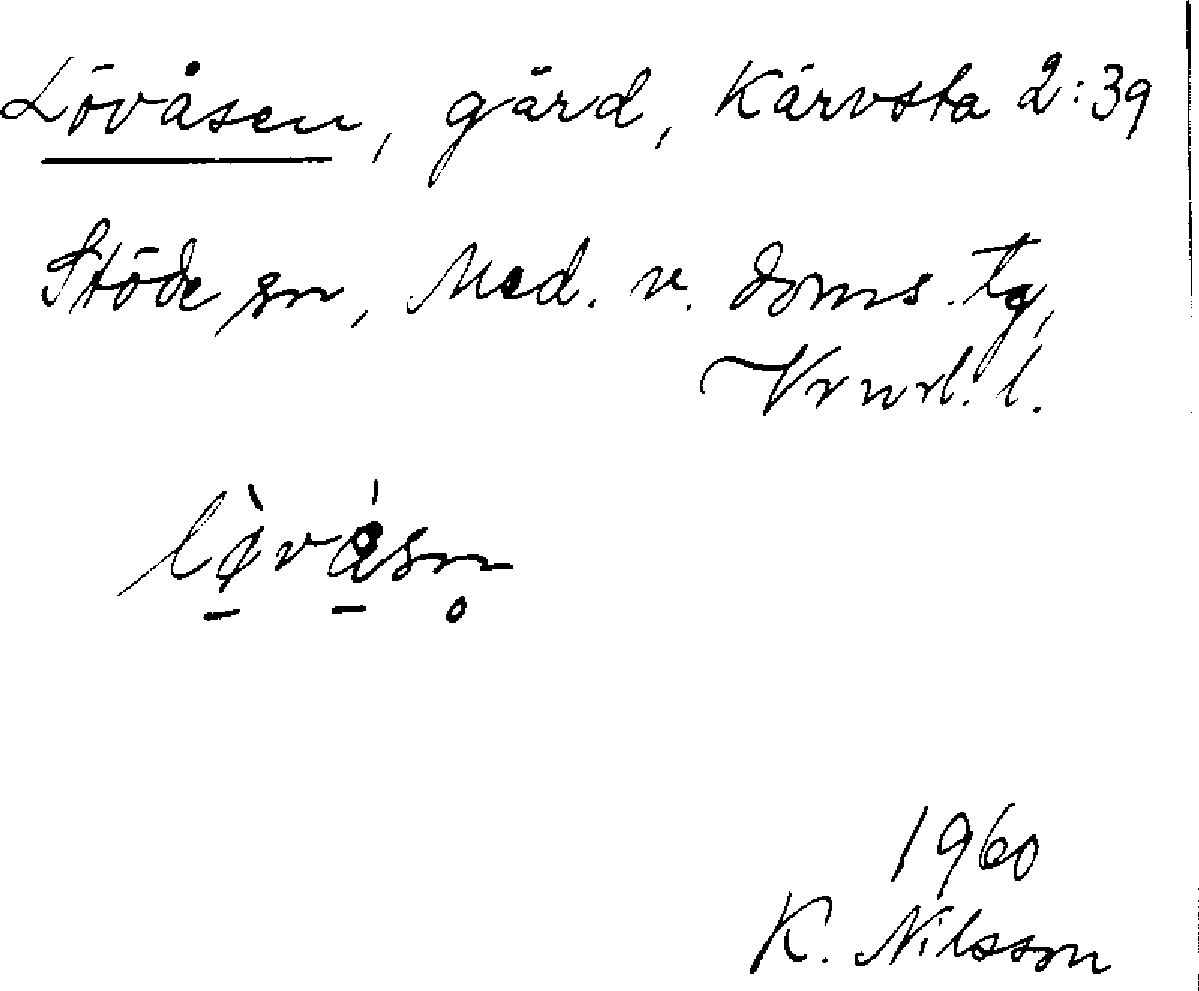 Lövåsen, gård, Kärvsta 2:39
Stöde sn, Med. v. doms. tg,
Vrnrl. l.
lø̀vásn̥
1960
K. Nilsson